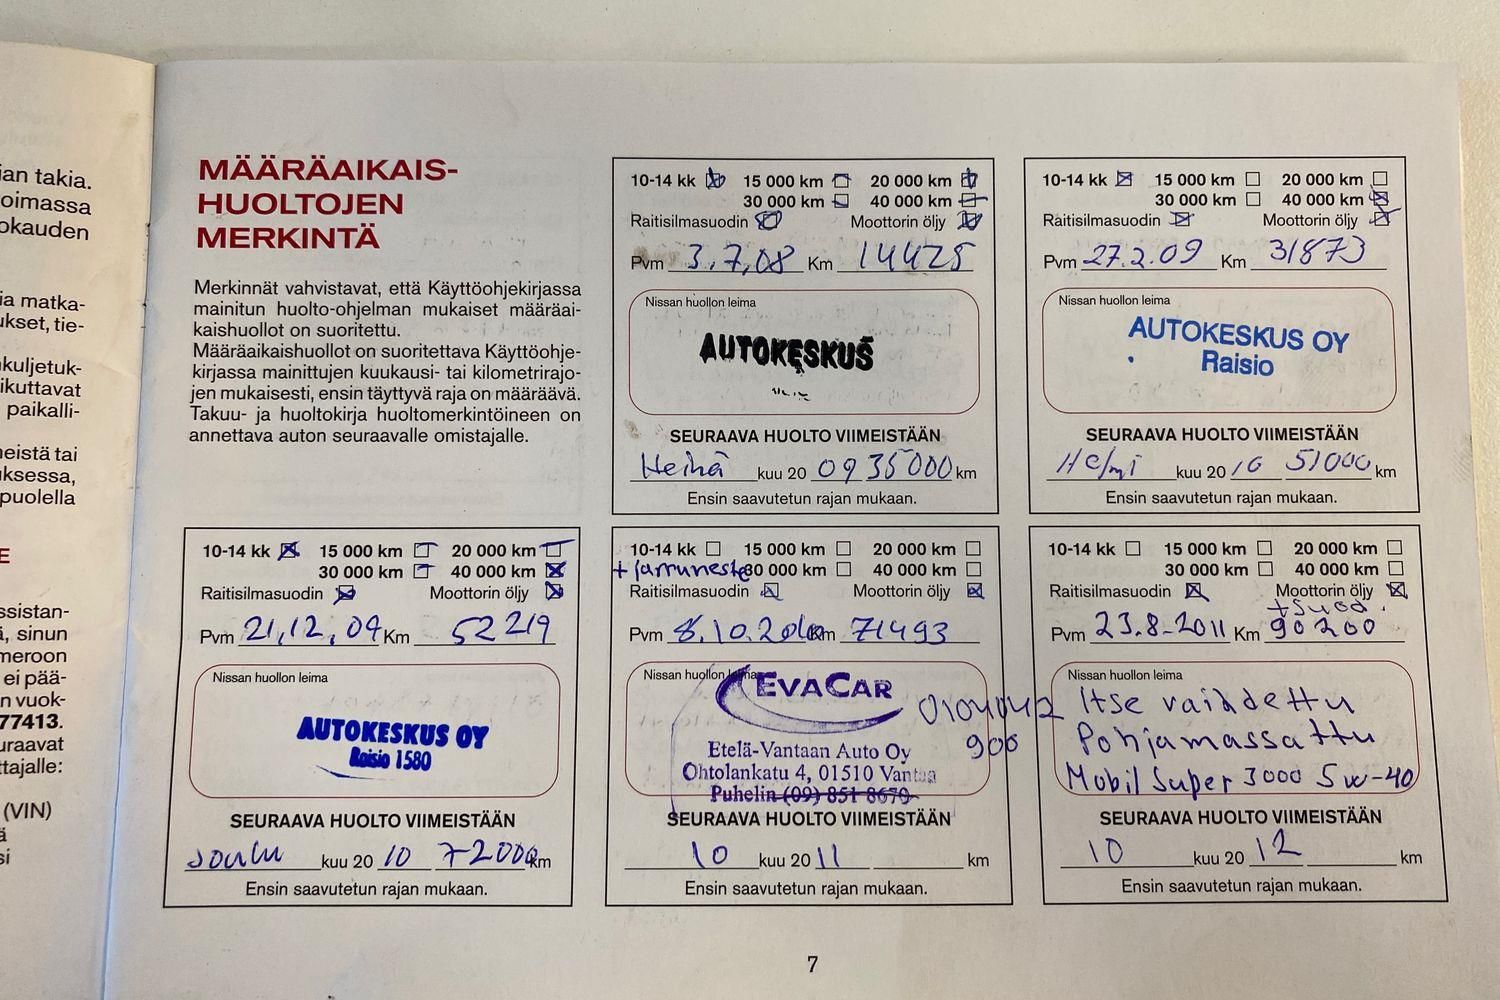 ian takia.
oimassa
okauden
ia matka-
ukset, tie-
kuljetuk-
ikuttavat
paikalli-
neistä tai
uksessa,
puolella
E
ssistan-
ä, sinun
meroon
ei pää-
n vuok-
77413.
uraavat
ttajalle:
(VIN)
ä
si
MÄÄRÄAIKAIS-
HUOLTOJEN
MERKINTÄ
Merkinnät vahvistavat, että Käyttöohjekirjassa
mainitun huolto-ohjelman mukaiset määräai-
kaishuollot on suoritettu.
Määräaikaishuollot on suoritettava Käyttöohje-
kirjassa mainittujen kuukausi- tai kilometrirajo-
jen mukaisesti, ensin täyttyvä raja on määräävä.
Takuu- ja huoltokirja huoltomerkintöineen on
annettava auton seuraavalle omistajalle.
10-14 kk 15 000 km 20 000 km
30 000 km 40 000 km
Raitisilmasuodin Moottorin öljy
Pvm 3.7.08 Km 14425
Nissan huollon leima
AUTOKESKUS
SEURAAVA HUOLTO VIIMEISTÄÄN
Heinä kuu 20 09 35000 km
Ensin saavutetun rajan mukaan.
10-14 kk 15 000 km 20 000 km
30 000 km 40 000 km
Raitisilmasuodin Moottorin öljy
Pvm 27.2.09 Km 31873
Nissan huollon leima
AUTOKESKUS OY
Raisio
SEURAAVA HUOLTO VIIMEISTÄÄN
Helmi kuu 20 10 51000 km
Ensin saavutetun rajan mukaan.
10-14 kk 15 000 km 20 000 km
30 000 km 40 000 km
Raitisilmasuodin Moottorin öljy
Pvm 21.12.09 Km 52219
Nissan huollon leima
AUTOKESKUS OY
Raisio 1580
SEURAAVA HUOLTO VIIMEISTÄÄN
Joulu kuu 20 10 72000 km
Ensin saavutetun rajan mukaan.
10-14 kk 15 000 km 20 000 km
+ jarruneste 30 000 km 40 000 km
Raitisilmasuodin Moottorin öljy
Pvm 8.10.2010 Km 71493
Nissan huollon leima
EVACAR
0104042
900
Etelä-Vantaan Auto Oy
Ohtolankatu 4, 01510 Vantaa
Puhelin (09) 851 8670
SEURAAVA HUOLTO VIIMEISTÄÄN
10 kuu 20 11 km
Ensin saavutetun rajan mukaan.
10-14 kk 15 000 km 20 000 km
30 000 km 40 000 km
Raitisilmasuodin Moottorin öljy
+ suod.
Pvm 23.8.2011 Km 90200
Nissan huollon leima
Itse vaihdettu
Pohjamassattu
Mobil Super 3000 5w-40
SEURAAVA HUOLTO VIIMEISTÄÄN
10 kuu 20 12 km
Ensin saavutetun rajan mukaan.
7